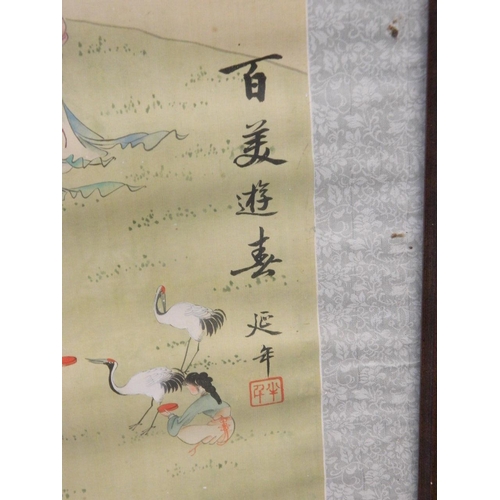 百美遊春
延年